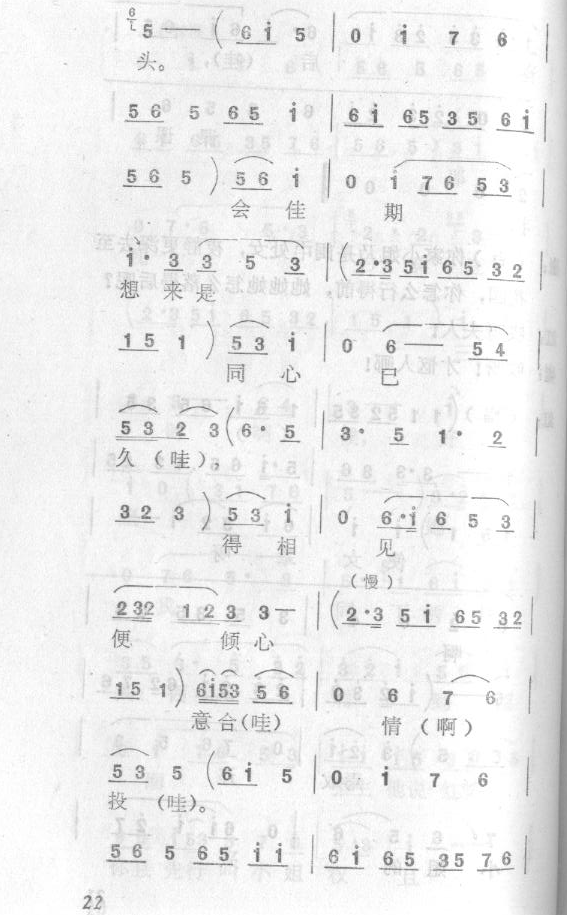 6 5 —— ( 6 i̇ 5 | 0 i̇ 7 6 |
头。
5 6 5 6 5 i̇ | 6 i̇ 6 5 3 5 6 i̇
5 6 5 ) 5 6 i̇ | 0 i̇ 7 6 5 3 |
会 佳 期
i̇ · 3 3 5 3 | ( 2 · 3 5 i̇ 6 5 3 2 |
想 来 是
1 5 1 ) 5 3 i̇ | 0 6 —— 5 4 |
同 心 已
5 3 2 3 ( 6 · 5 | 3 · 5 1 · 2 |
久 (哇),
3 2 3 ) 5 3 i̇ | 0 6 · i̇ 6 5 3 |
得 相 见
(慢)
2 3 2 1 2 3 3 — | ( 2 · 3 5 i̇ 6 5 3 2 |
便 倾 心
1 5 1 ) 6 i̇ 5 3 5 6 | 0 6 7 6 |
意 合 (哇) 情 (啊)
5 3 5 ( 6 i̇ 5 | 0 i̇ 7 6 |
投 (哇)。
5 6 5 6 5 i̇ i̇ | 6 i̇ 6 5 3 5 7 6 |
22